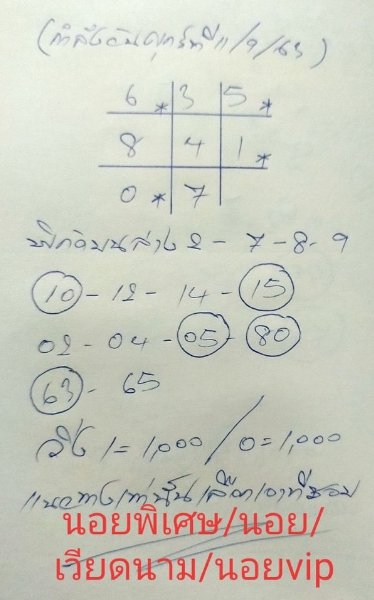 (กำลังวันศุกร์ที่ 11/9/63)
6 * 3 5 *
8 4 1 *
0 * 7
บนล่าง 2 - 7 - 8 - 9
10 - 12 - 14 - 15
02 - 04 - 05 - 80
63 - 65
วิ่ง 1 = 1,000 / 0 = 1,000
แนวทางเท่านั้นเลือกเอาที่ชอบ
นอยพิเศษ/นอย/
เวียดนาม/นอยvip